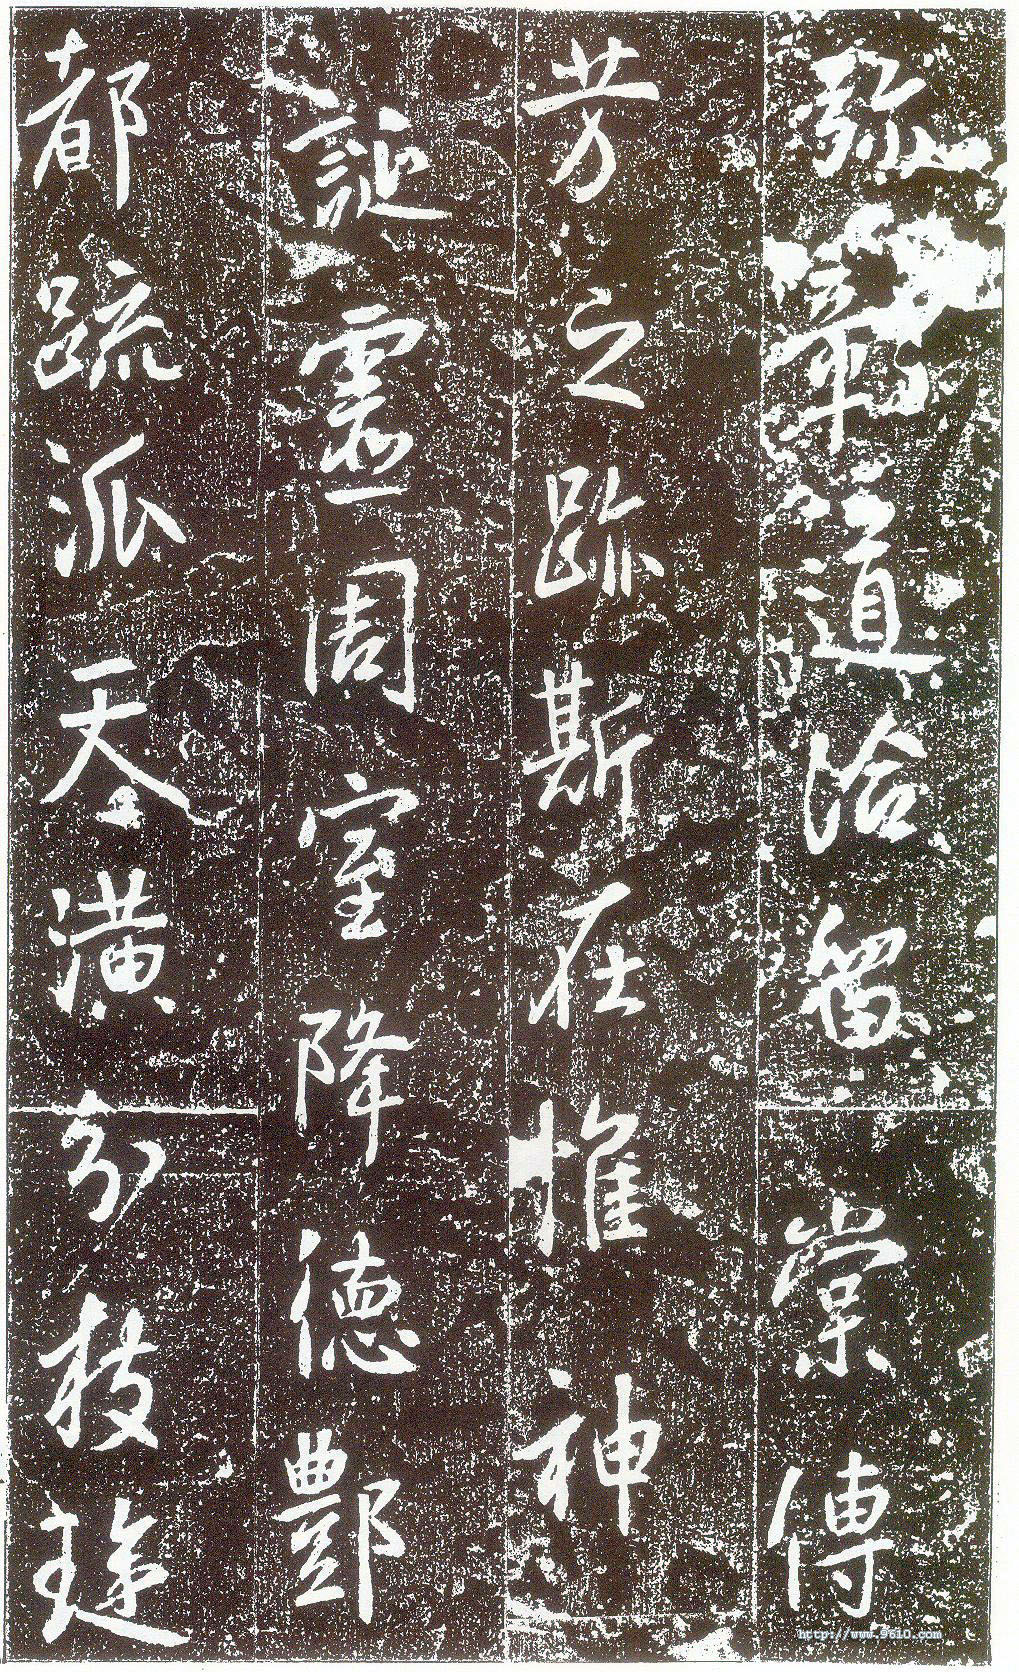 弥彰道洽留棠傳
芳之跡斯在惟神
誕靈周室降德酆
都疏派天潢分枝璇
http://www.9610.com